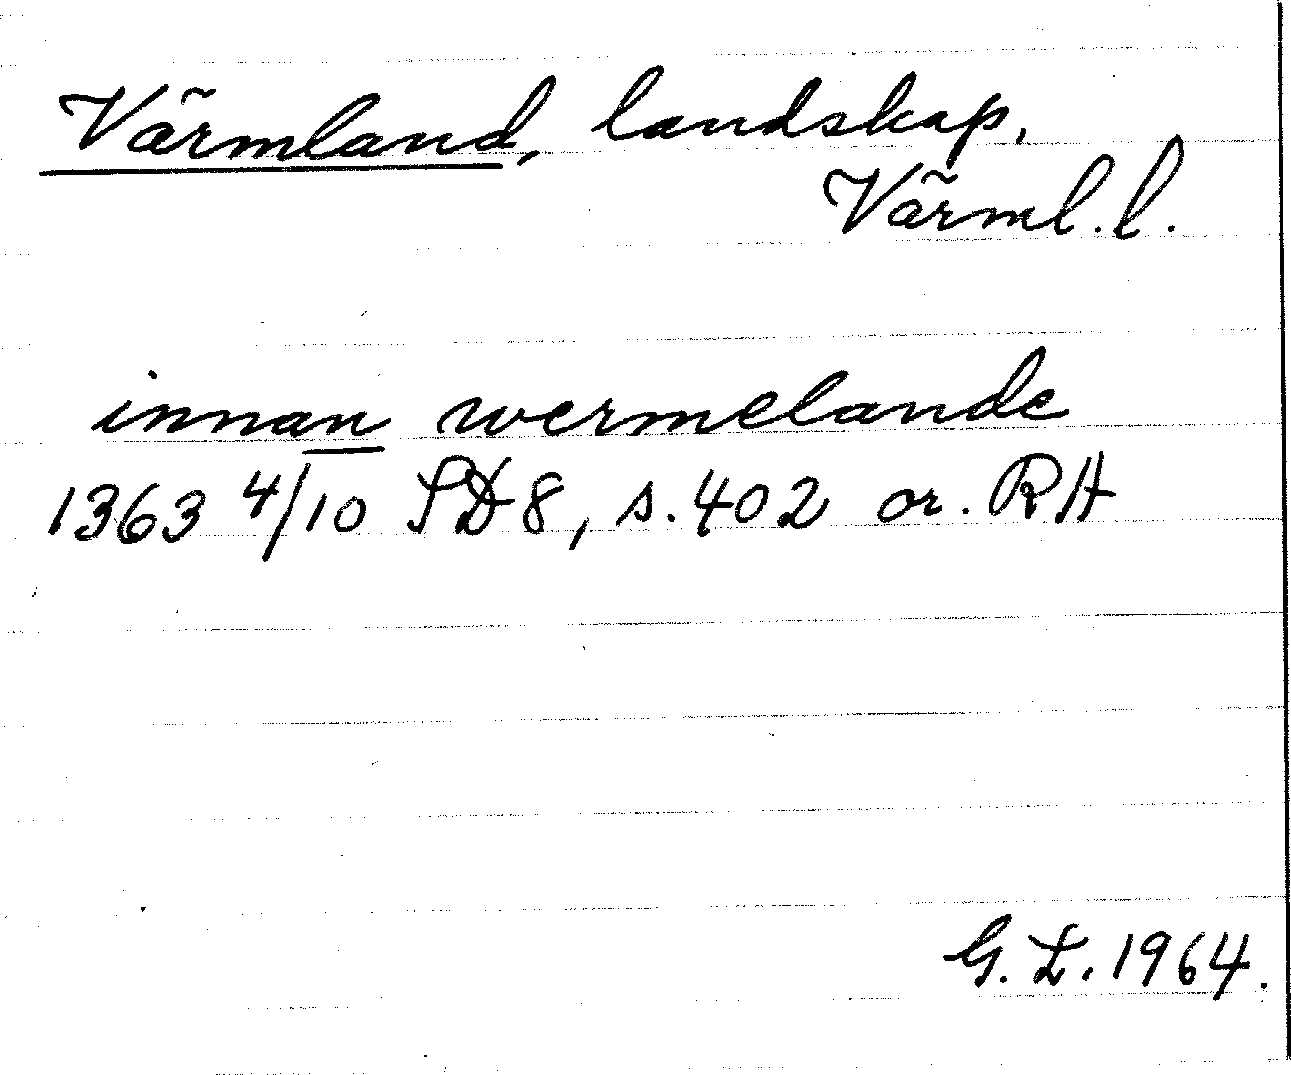 Värmland, landskap,
Värml. l.
innan wermelande
1363 4/10 SD 8, s. 402 or. RA
G. L. 1964.